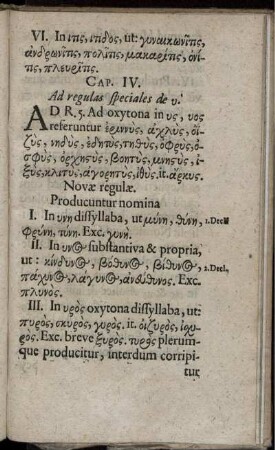 VI. In ιπς, ιπδος, ut: γυναικωνῖπς,
ἀνδρωνῖπς, πολίπς, μακαρίπς, ὀνί-
πς, πλευρῖπς.
CAP. IV.
Ad regulas speciales de υ.
AD R. 5. Ad oxytona in υς, υος
referuntur ἐριννὺς, ἀχλὺς, οἰ-
ζὺς, νηδὺς, ἐδητὺς, πθὺς, ὀφρὺς,
ὀσφὺς, ὀρχηςὺς, βοητὺς, μνηςὺς,
ξὺς, κλιτὺς, ἀγορητὺς, ἰθὺς. it. ἄρκυς.
Novæ regulæ.
Producuntur nomina
I. In υνη dissyllaba, ut μύνη, θύνη, 1. Decl.
φρύνη, τύνη. Exc. γυνή.
II. In υνος substantiva & propria,
ut: κίνδυνος, βόθυνος, βίθυνος, 2. Decl.
πάχυνος, λάγυνος, ἀνθύθυνος. Exc.
πλυνός.
III. In υρὸς oxytona dissyllaba, ut:
πυρὸς, σκυρὸς, γυρὸς. it. οἰζυρὸς, ἰχυ-
ρὸς. Exc. breve ξυρὸς. πυρὸς plerum-
que producitur, interdum corripi-
tur